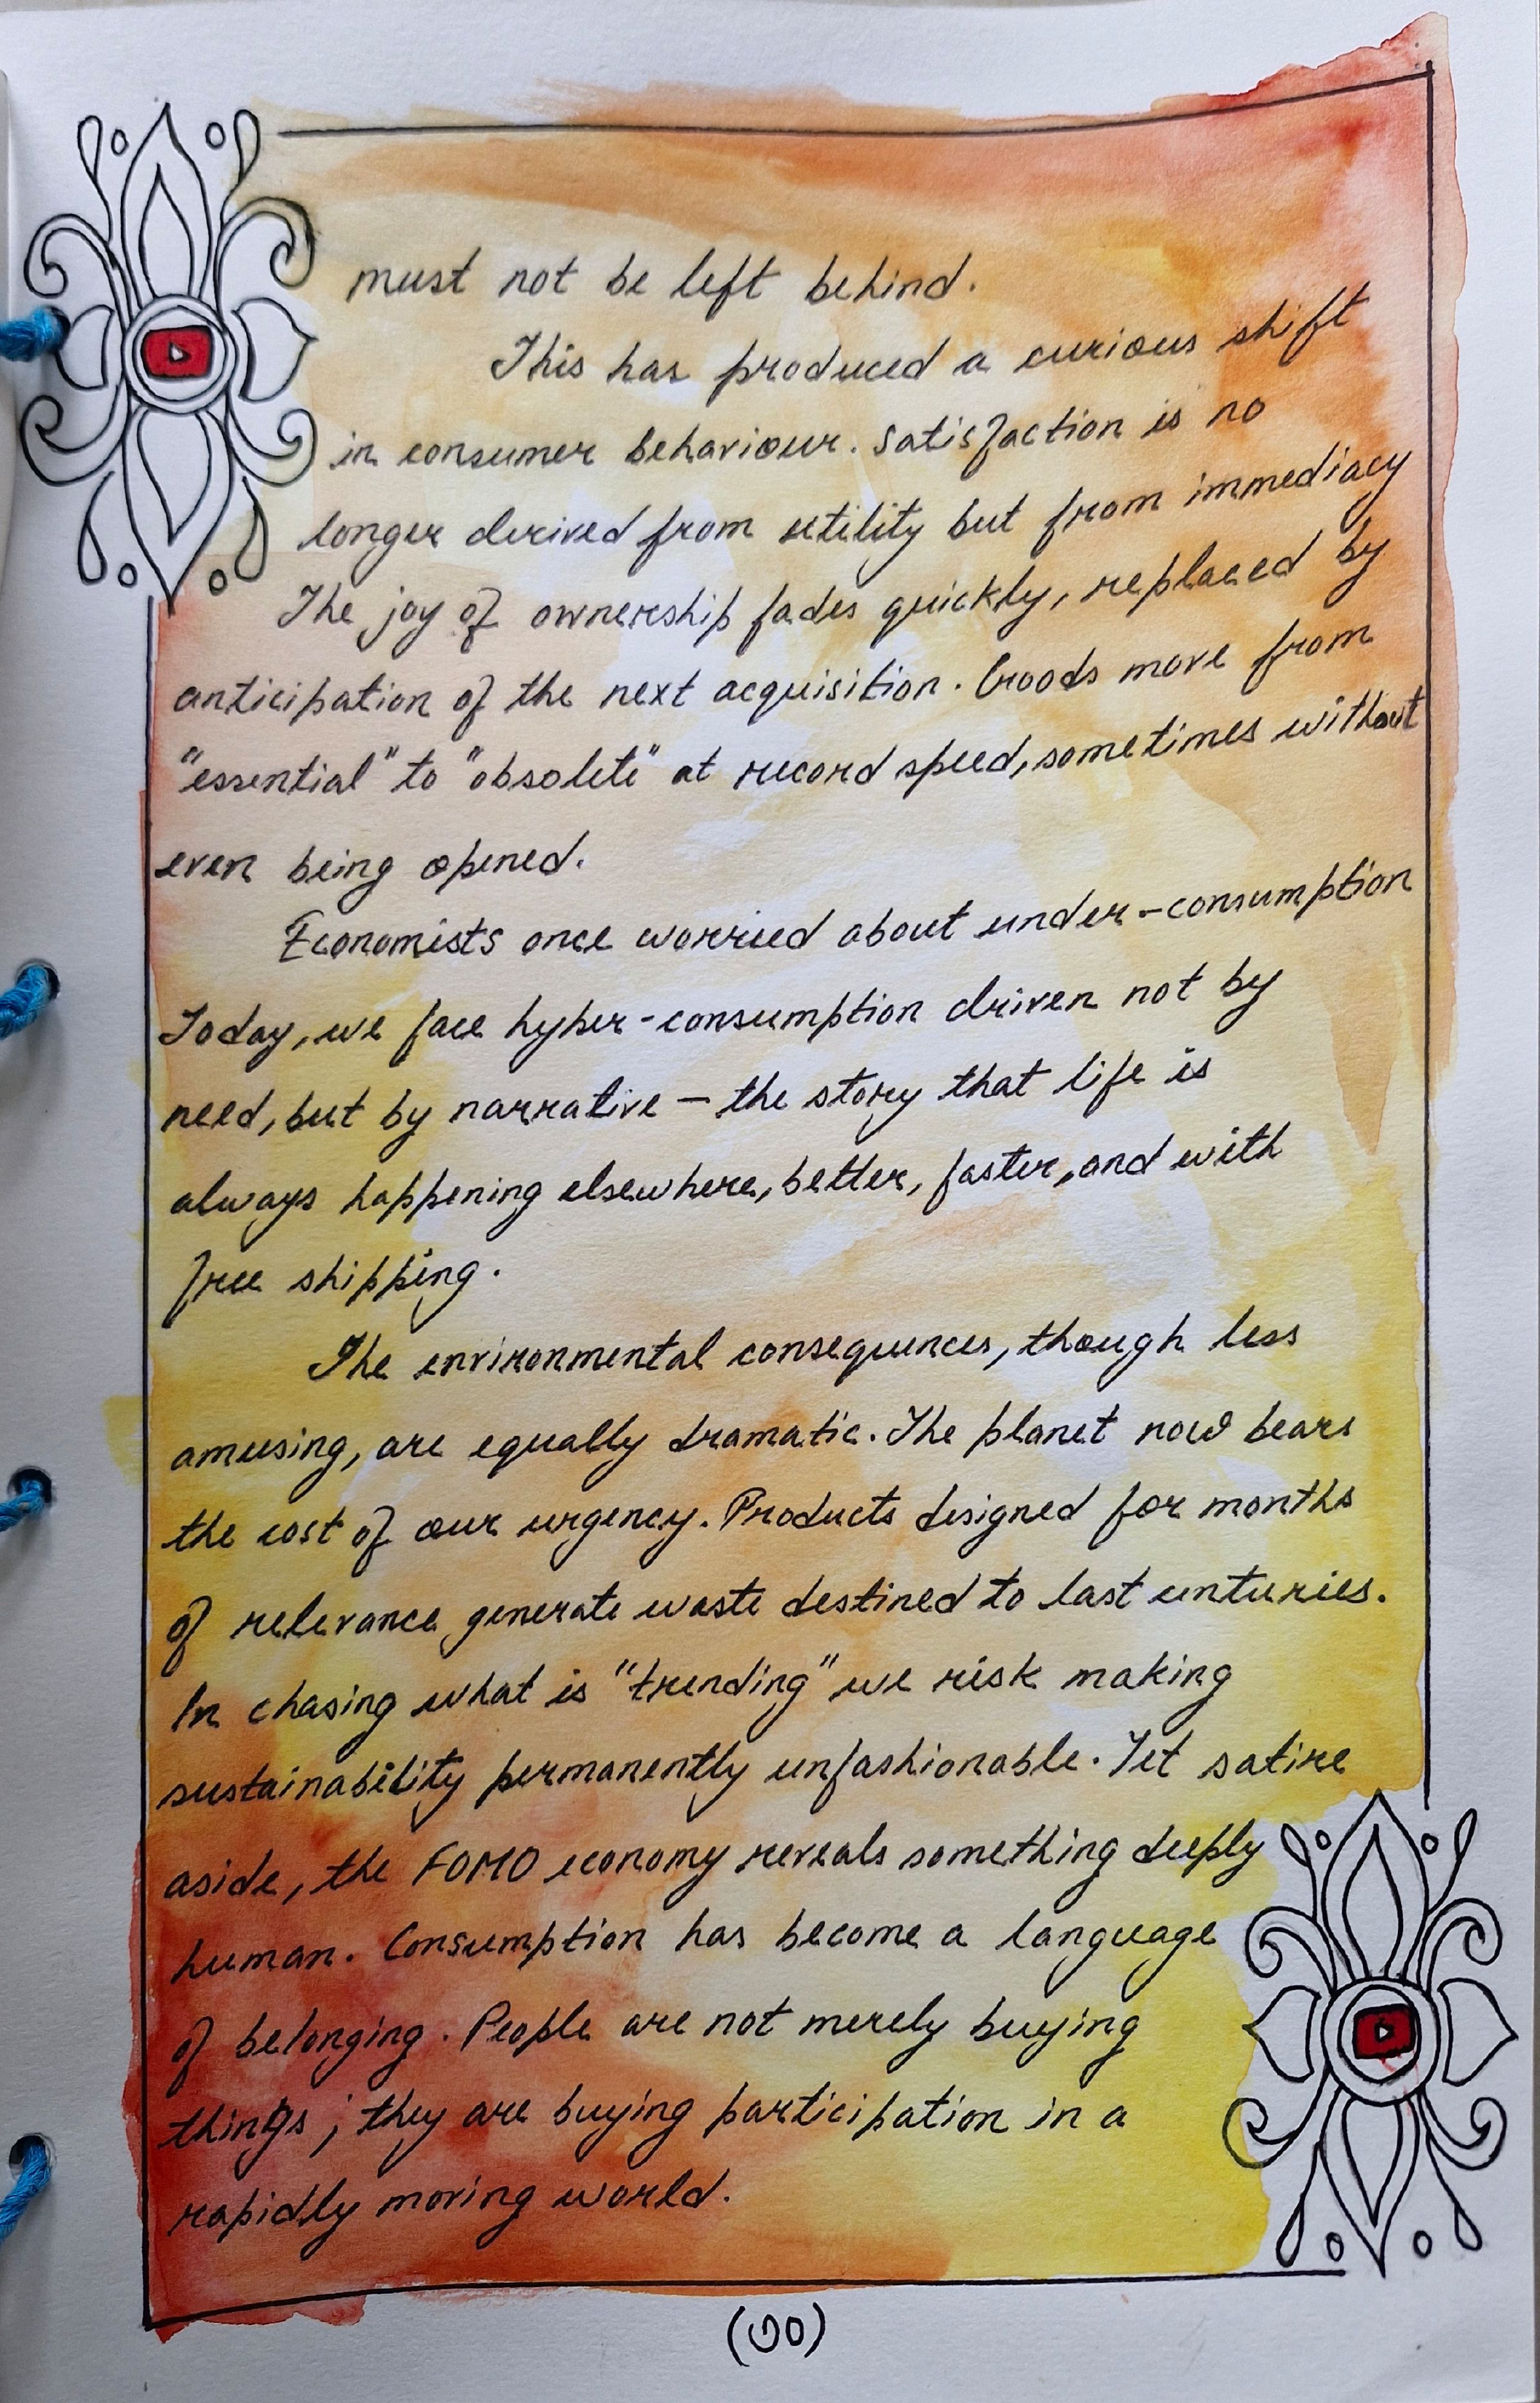 must not be left behind.
This has produced a curious shift
in consumer behaviour. Satisfaction is no
longer derived from utility but from immediacy
The joy of ownership fades quickly, replaced by
anticipation of the next acquisition. Goods move from
"essential" to "obsolete" at record speed, sometimes without
even being opened.
Economists once worried about under-consumption
Today, we face hyper-consumption driven not by
need, but by narrative — the story that life is
always happening elsewhere, better, faster, and with
free shipping.
The environmental consequences, though less
amusing, are equally dramatic. The planet now bears
the cost of our urgency. Products designed for months
of relevance generate waste destined to last centuries.
In chasing what is "trending" we risk making
sustainability permanently unfashionable. Yet satire
aside, the FOMO economy reveals something deeply
human. Consumption has become a language
of belonging. People are not merely buying
things; they are buying participation in a
rapidly moving world.
(৩০)